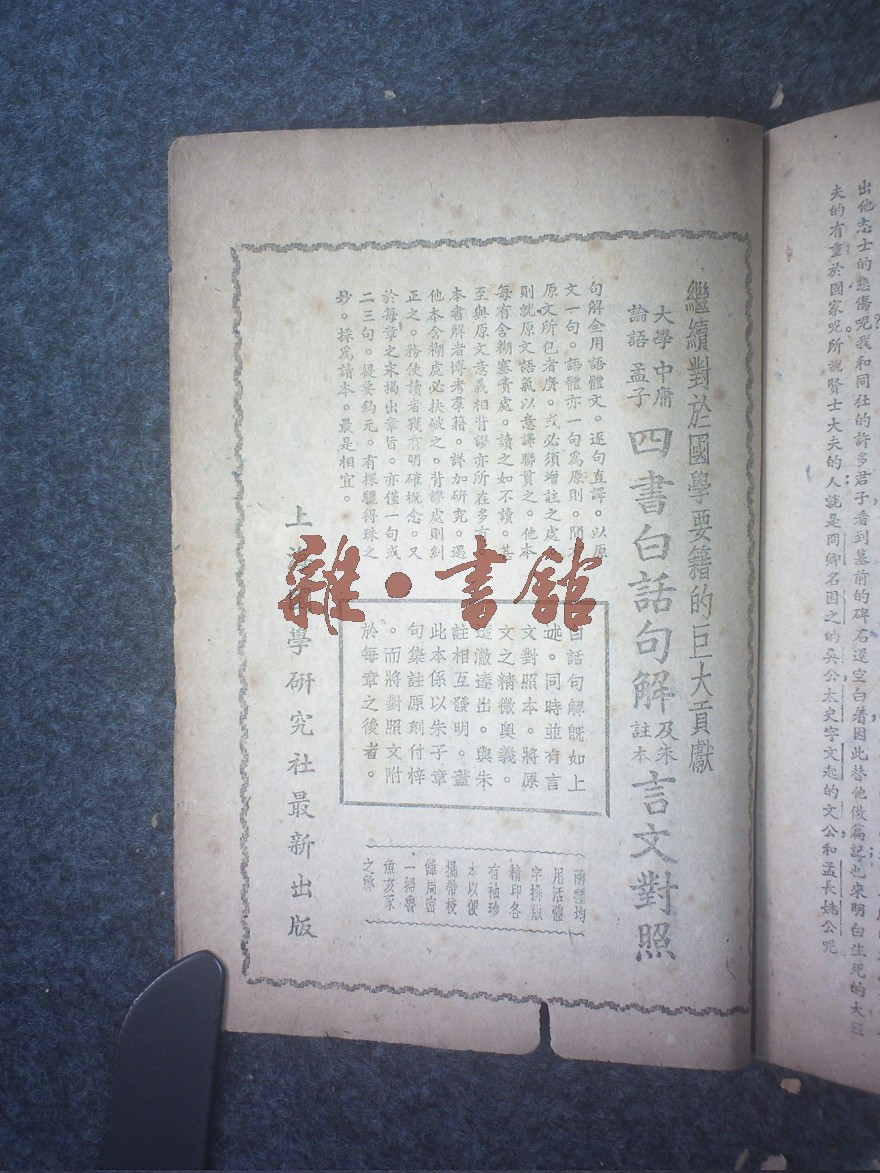 出他志士的悲傷呢我和同社的許多君子看到墓前的碑石還空白著因此替他做篇記也來明白生死的大
夫的有重於國家呢所說賢士大夫的人就是冏卿名因之的吳公太史字文起的文公和孟長姚公呢
繼續對於國學要籍的巨大貢獻
大學 中庸
論語 孟子
四書白話句解
及朱
註本
言文對照
句解全用語體文。逐句直譯。以原
文一句。語體亦一句爲原則。間
原文所包者廣。或必須增註之處
則就原文語氣以意譯聯貫之。他本
每有含糊塞責處。讀之如不讀。甚
至與原文意義相背謬亦所在多有
本書解者博考羣籍。詳加研究。遇
他本含糊處必抉破之。背謬處則糾
正之。務使讀者獲有明確概念。又
於每章之末揭出章旨。亦僅一句或
二三句。提要鈎元。有探驪得珠之
妙。採爲讀本。最是相宜。
白話句解旣如上
述。同時並有言
文對照本。將原
文之精微奧義。
透澈達出。與朱
註相互發明。蓋
此本係以朱子章
句集註原刻付梓
。而將對照文附
於每章之後者。
兩種均
用活體
字排版
精印各
有袖珍
本以便
攜帶校
讎周密
一掃魯
魚亥豕
之弊
上學研究社最新出版
雜·書館